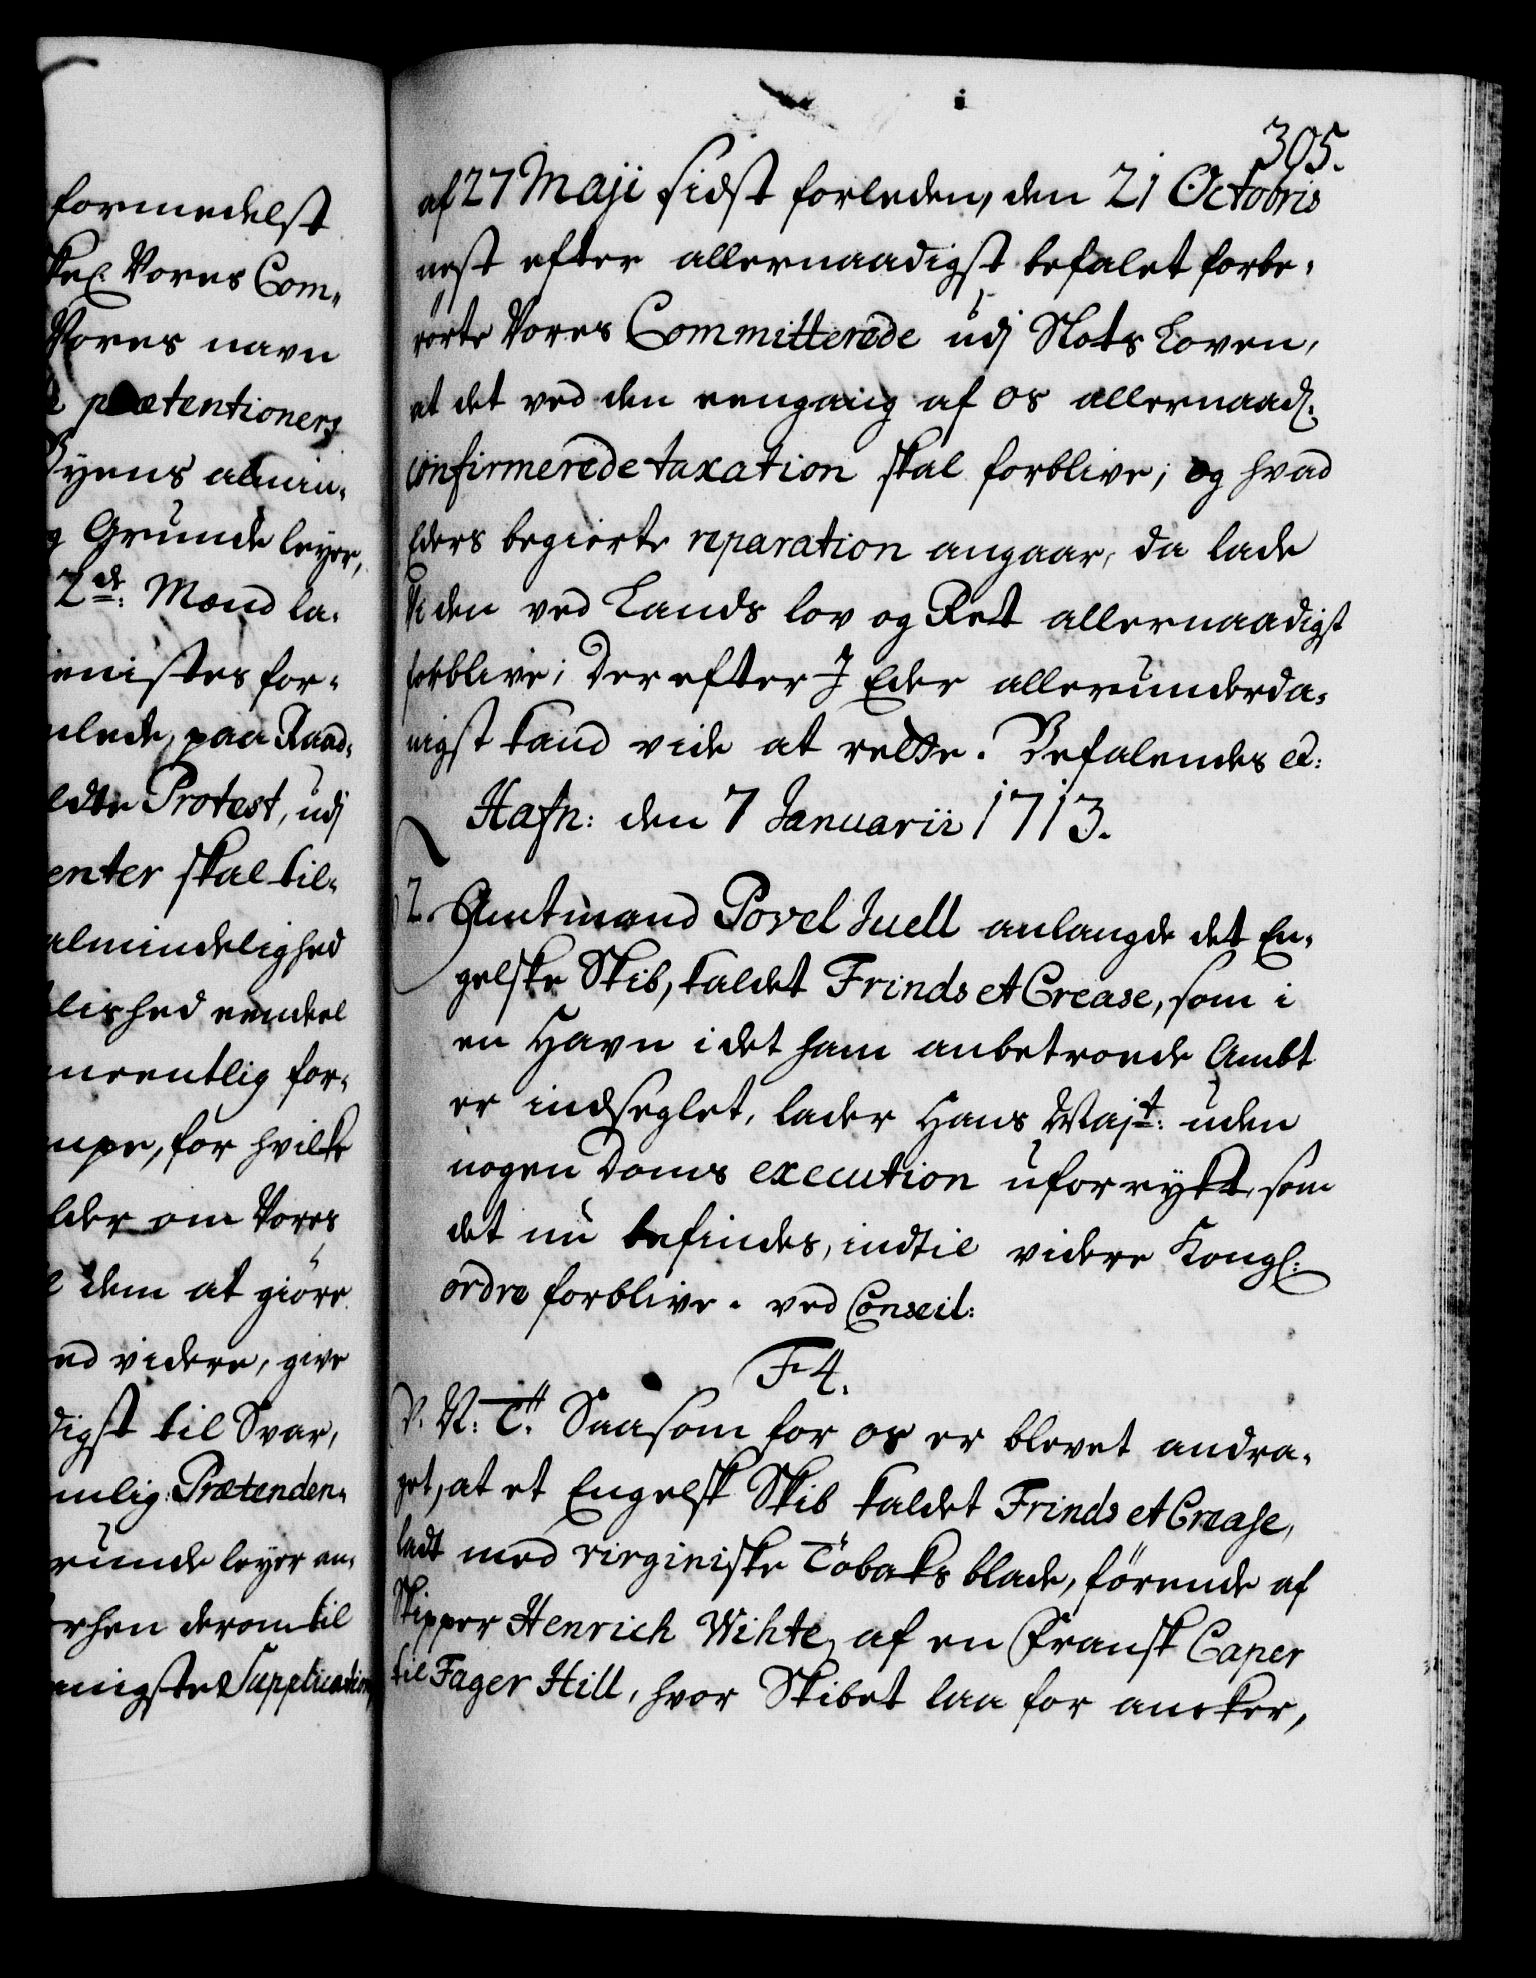 formedelst
Vores Com„
Vores navn
prætentioners
Byens almin„
Grunde leyer,
2de: Mænd la„
enistes for„
paa Raad„
Protest, udj
enter skal til„
almindelighed
lished eendeel
neentlig for„
for hvilke
om Vores
dem at giöre
videre, give
digst til Svar,
mlig: Prætenden„
runde leyer an„
derom til
nigste Supplication
305.
af 27 Maji sidst forleden, den 21 Octobris
nest efter allernaadigst befalet forbe„
rörte Vores Committerede udj Slots Loven,
at det ved den eengang af os allernaad:
confirmerede taxation skal forblive; og hvad
Eders begierte reparation angaar, da lade
Vi den ved Lands lov og Ret allernaadigst
forblive; Derefter I Eder allerunderda„
nigst kand vide at rette. Befalendes etc:
Hafn: den 7 Januarii 1713.
2. Amtmand Povel Juell anlangde det En„
gelske Skib, kaldet Frinds et Crease, som i
en Havn i det ham anbetroede Ambt
er indseglet, lader Hans Majt: uden
nogen Doms execution uforrykt, som
det nu befindes, indtil videre Kongl:
ordre forblive. ved Conseil:
F 4.
V. G: T: Saasom for os er blevet andra„
get, at et Engelsk Skib kaldet Frinds et Crease,
ladt med virginiske Tobaks blade, förende af
Skipper Henrich Wihte, af en Fransk Caper
til Fager Hill, hvor Skibet laa for ancker,